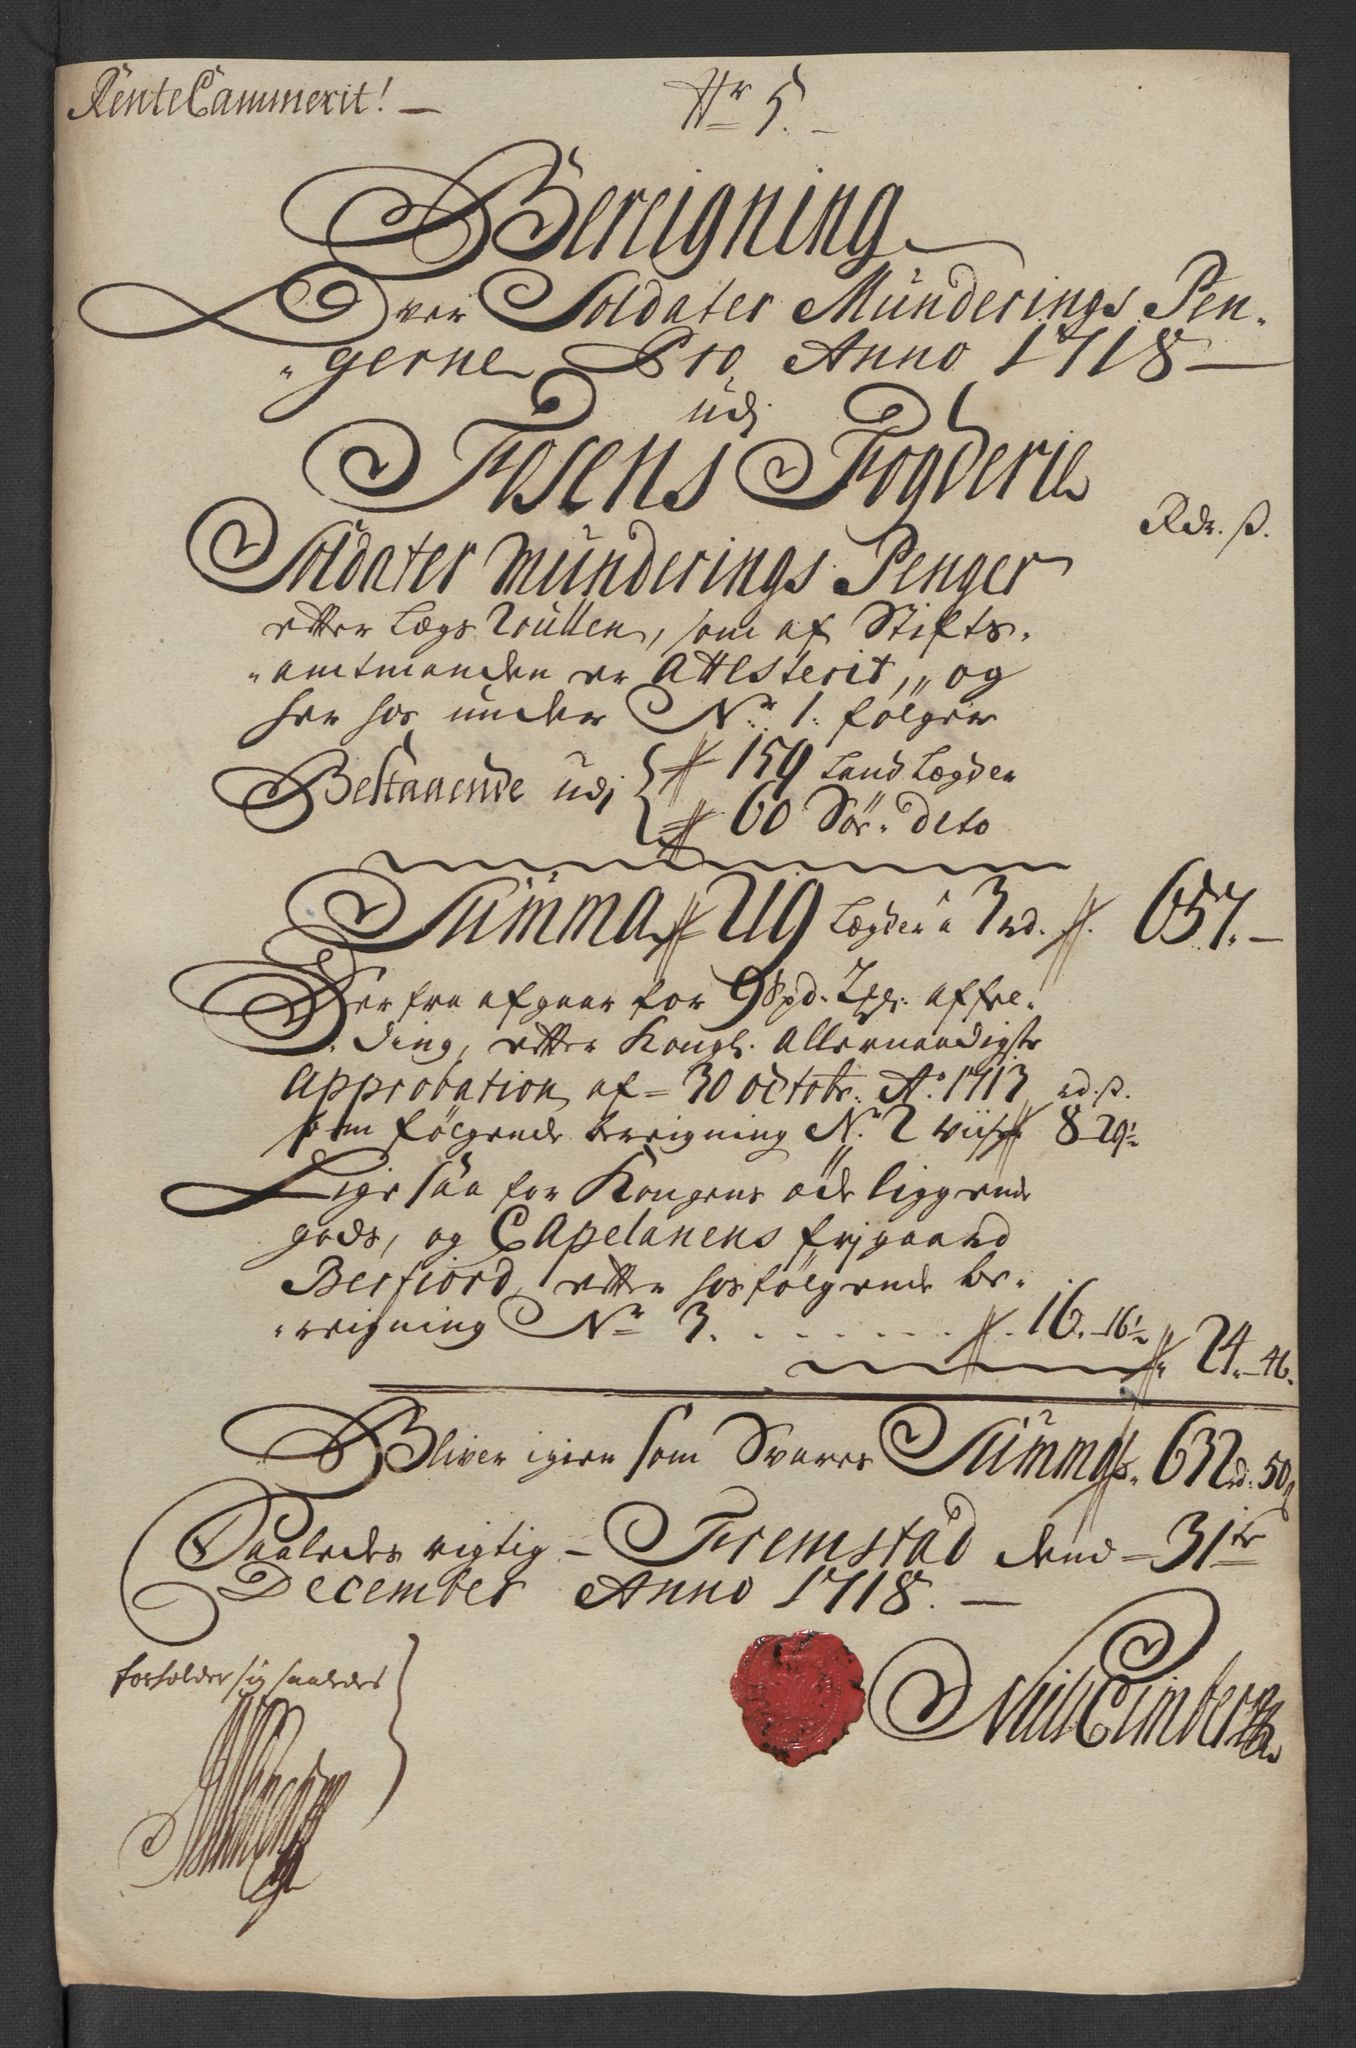 RenteCammerit! —
Nr 5. —
Bereigning
Over Soldater Münderings Pen-
gerne Pro Anno 1718 —
udj
Fosens Fogderie
Rdr. ß.
Soldater Münderings Penger
etter Lægs Rullen, som af Stifts-
amtmanden er Attesterit, og
her hos under Nr. 1. følger
Bestaaende udj { 159 Land Lægder
60 Sør. Dito
Summa 219 Lægder â 3 rd. 657. —
Her fra afgaar for 9 Spd. affel-
ding, etter Kongl. Allernaadigste
Approbation af 30 octobr. Ao. 1713 rd. ß.
som følgende bereigning Nr. 2 viiser 8 - 29½
Lige saa for Kongens øde liggende
gods, og Capelanens frjgaard
Berfiord, etter hosfølgende be-
reigning Nr. 3. . . . . . . 16. - 16½
24. - 46.
Bliver igien som Svares Summa 632 rd. 50 ß
Saaledes rigtig — Fremstad dend 31te
December Anno 1718. —
forholder sig saaledes